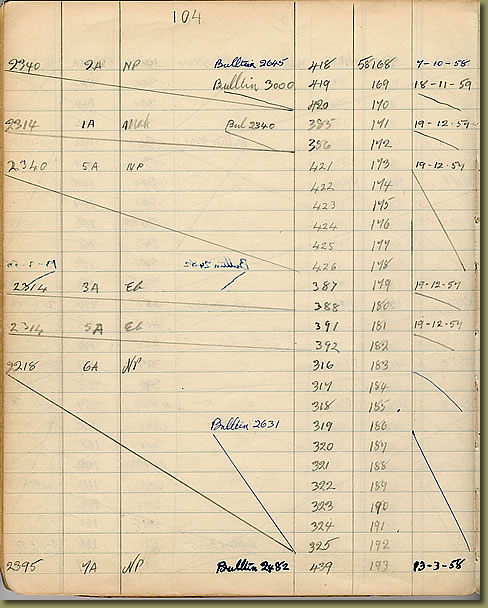 104
2340 2A NP Bulltin 2645 418 58168 7-10-58
Bulltin 3000 419 169 18-11-59
420 170
2314 1A Bul 2340 385 171 19-12-57
386 172
2340 5A NP 421 173 19-12-57
422 174
423 175
424 176
425 177
426 178
2314 3A EL 387 179 19-12-57
388 180
2314 5A EL 391 181 19-12-57
392 182
2218 6A NP 316 183
317 184
318 185
Bulltin 2631 319 186
320 187
321 188
322 189
323 190
324 191
325 192
2395 7A NP Bulltin 2482 439 193 13-3-58